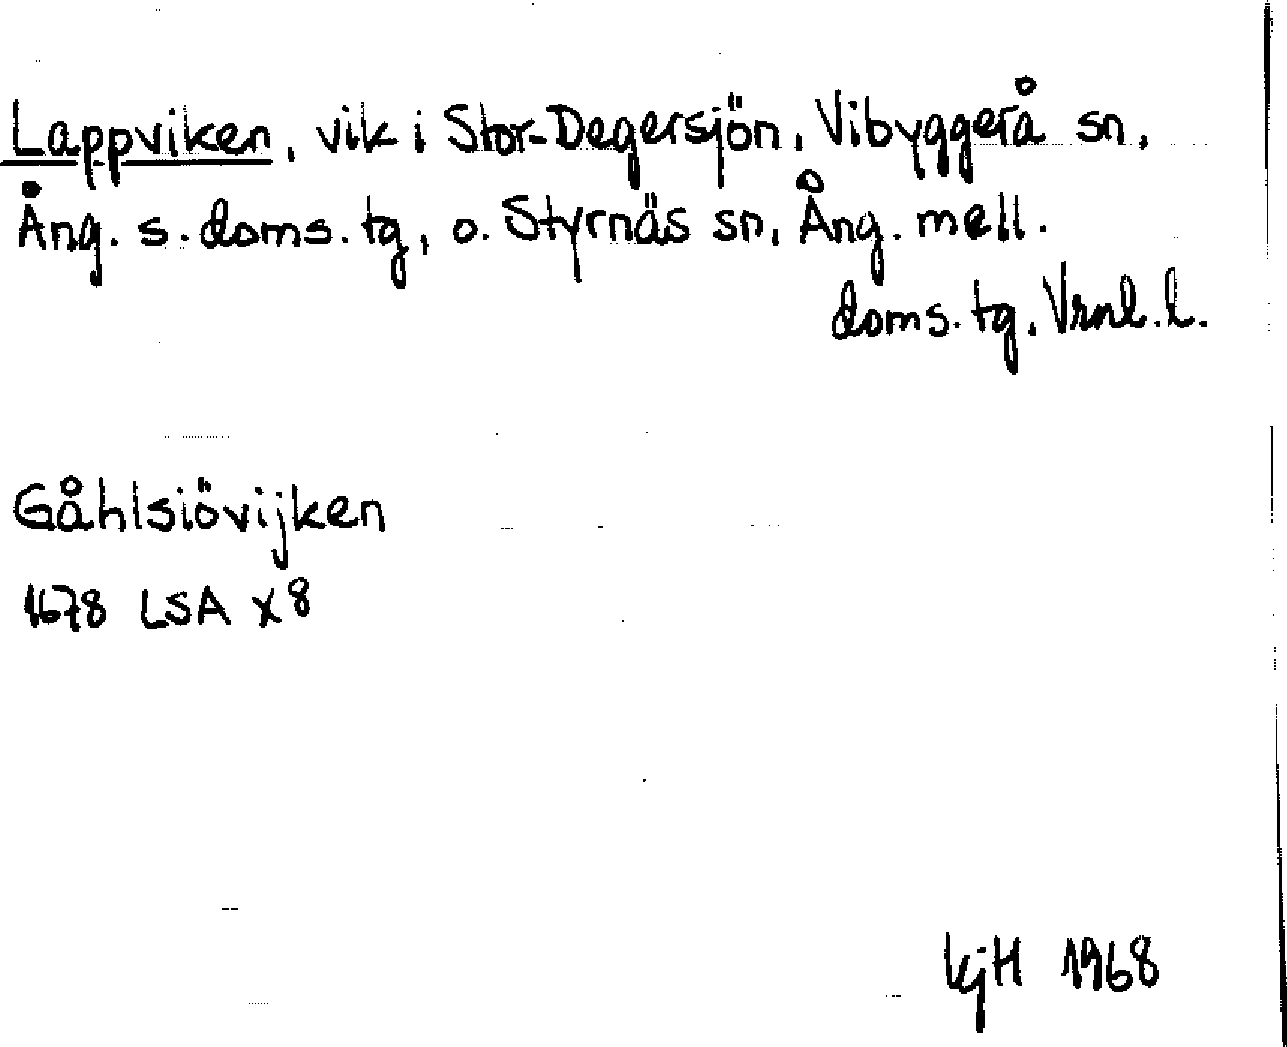 Lappviken, vik i Stor-Degersjön, Vibyggerå sn,
Ång. s. doms. tg, o. Styrnäs sn, Ång. mell.
doms. tg. Vrnl. l.
Gåhlsiövijken
1678 LSA X8
KjH 1968